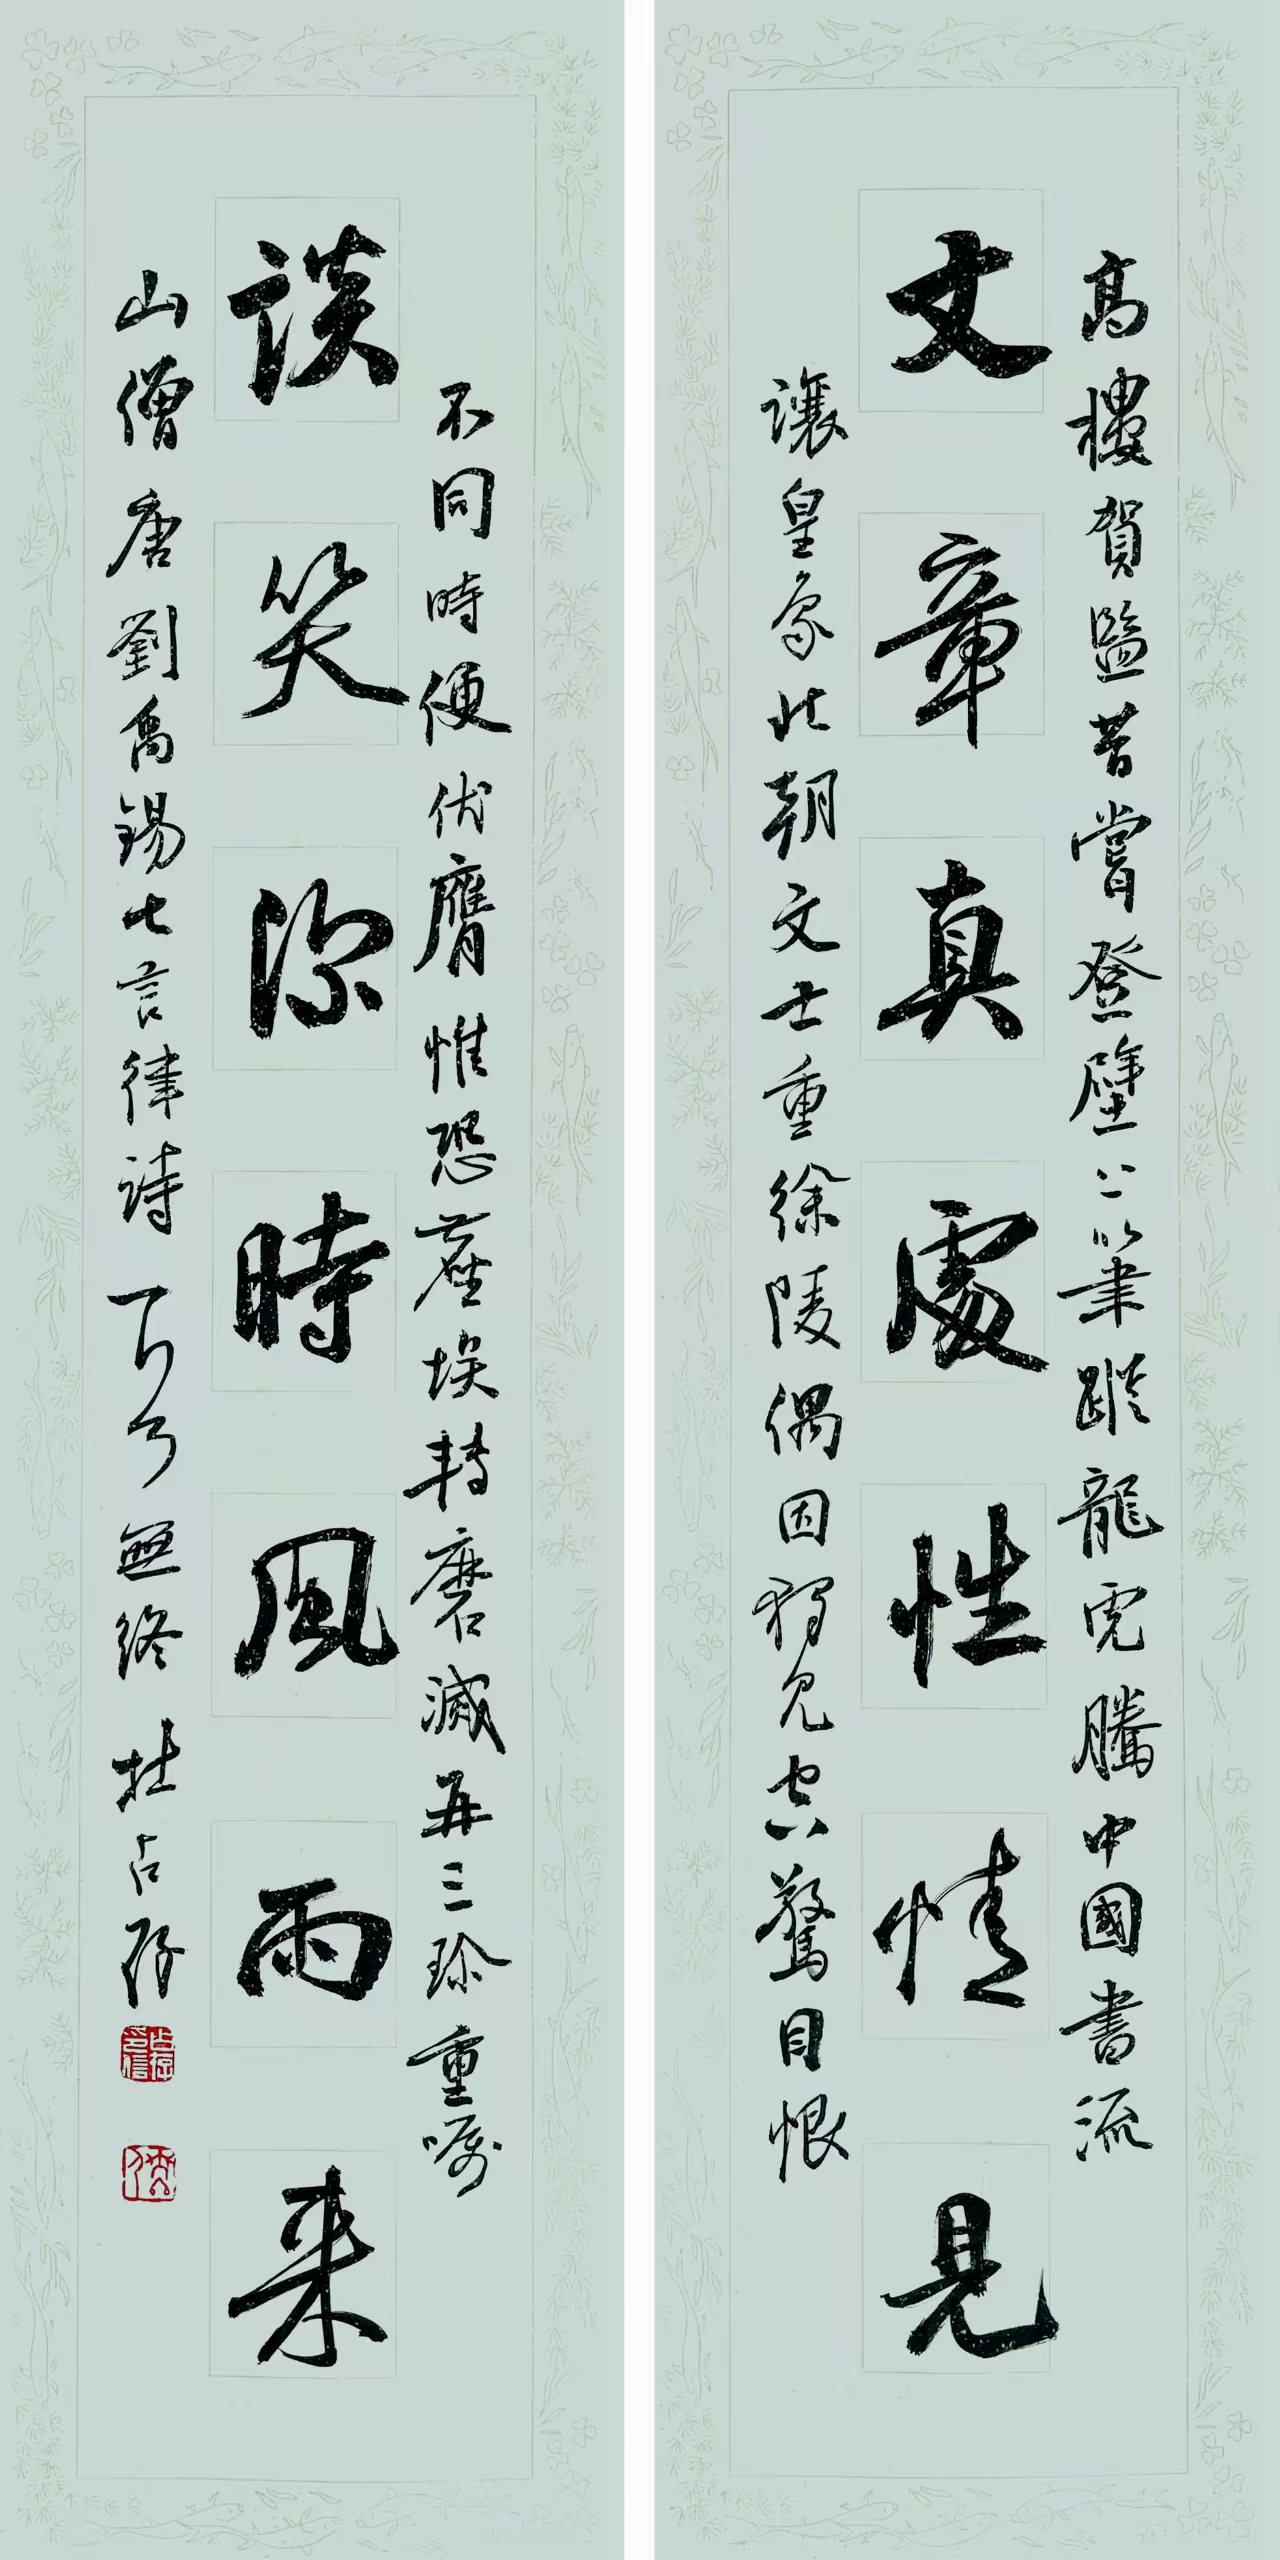 高樓賀監昔嘗登壁上筆蹤龍虎騰中國書流
文章真處性情見
讓皇象北朝文士重徐陵偶因獨見空驚目恨
不同時便伏膺惟恐塵埃轉磨滅再三珍重囑
談笑深時風雨來
山僧唐劉禹錫七言律詩 無終杜占存
占存印信